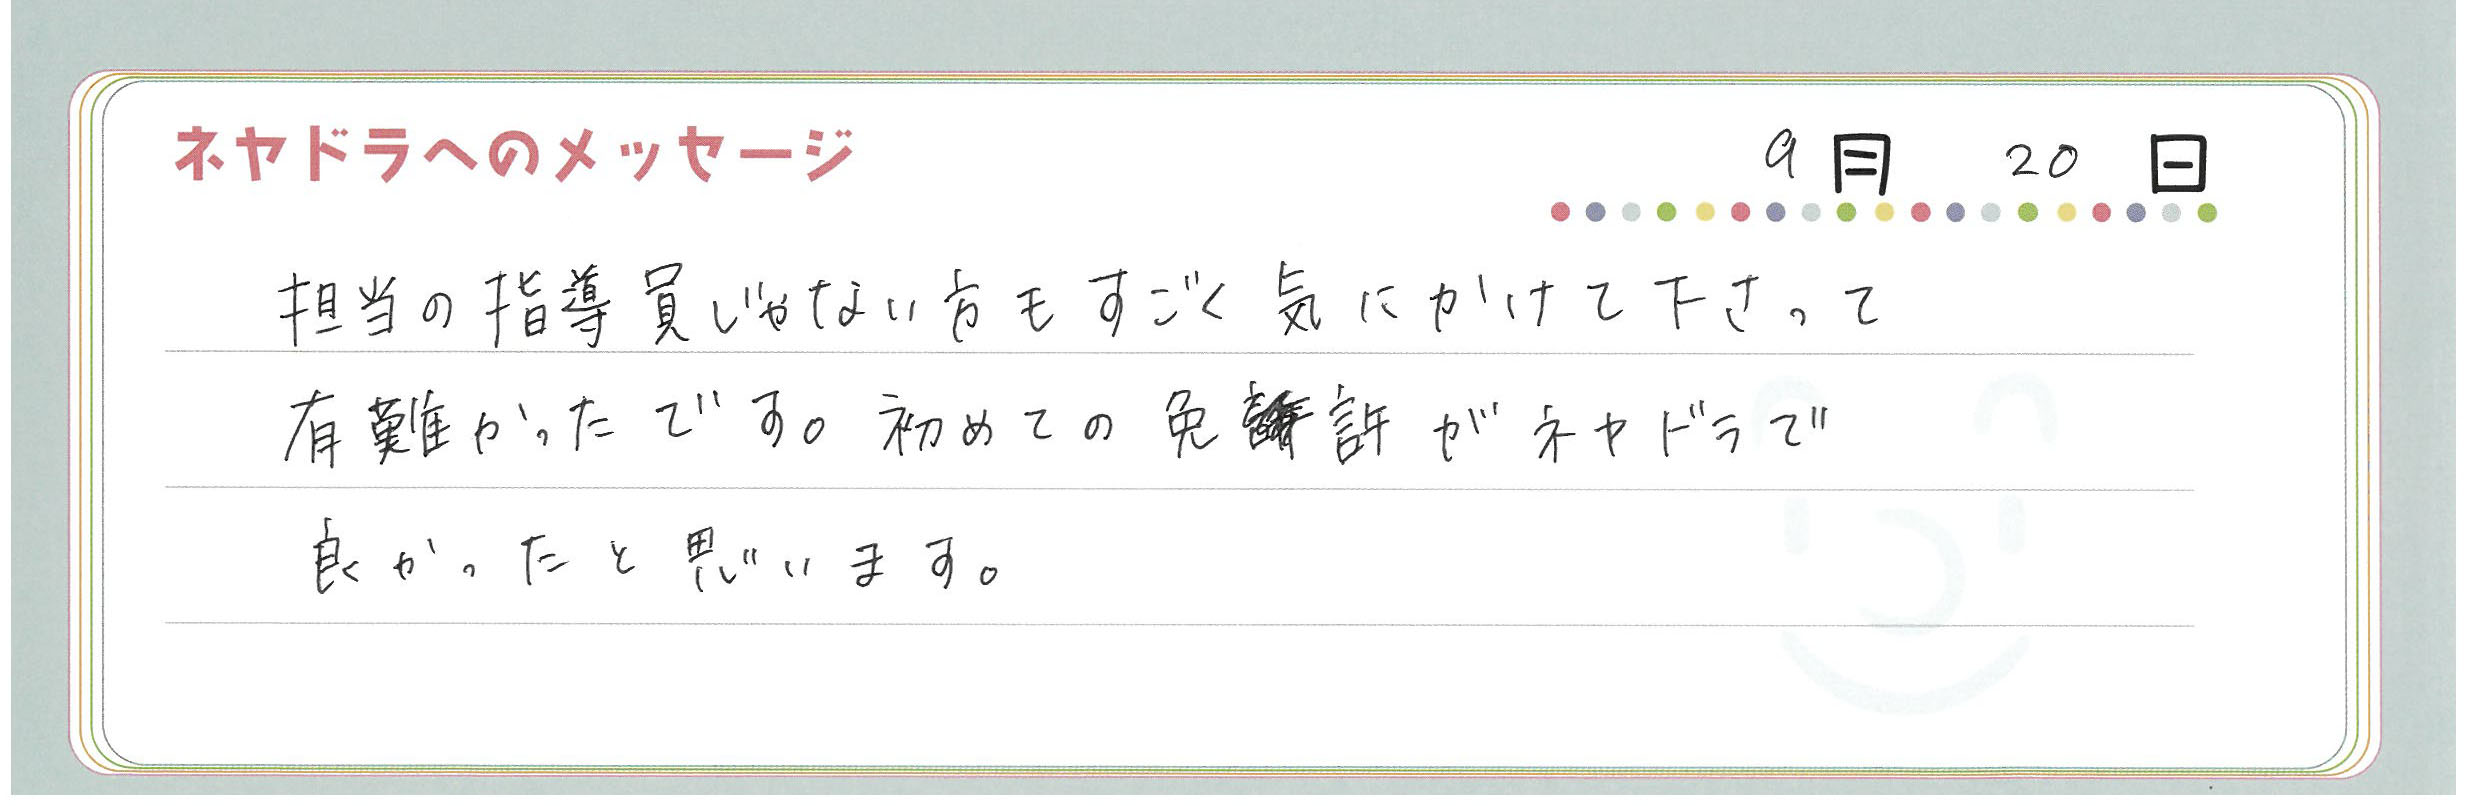 ネヤドラへのメッセージ
9月 20日
担当の指導員じゃない方もすごく気にかけて下さって
有難かったです。初めての免許がネヤドラで
良かったと思います。